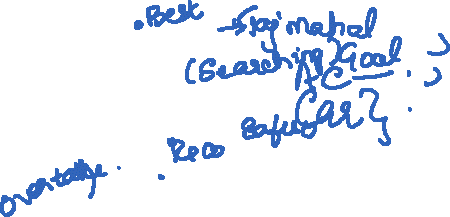 .Best → Taj mahal
(Searching) Goal
AC
. Rado Safety CAR
overtake.